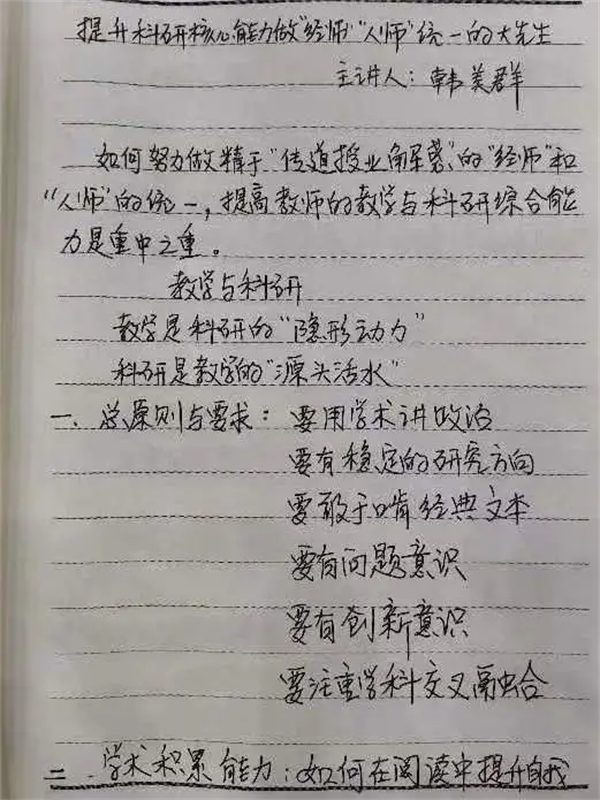 提升科研核心能力做“经师”“人师”统一的大先生
主讲人：韩美群
如何努力做精于“传道授业解惑”的“经师”和
“人师”的统一，提高教师的教学与科研综合能
力是重中之重。
教学与科研
教学是科研的“隐形动力”
科研是教学的“源头活水”
一、总原则与要求：要用学术讲政治
要有稳定的研究方向
要敢于啃经典文本
要有问题意识
要有创新意识
要注重学科交叉融合
二、学术积累能力：如何在阅读中提升自我